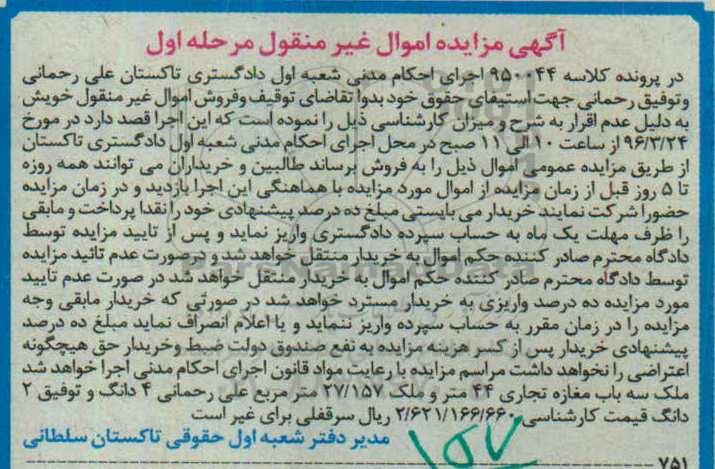 آگهی مزایده اموال غیر منقول مرحله اول
در پرونده کلاسه ۹۵۰۰۴۴ اجرای احکام مدنی شعبه اول دادگستری تاکستان علی رحمانی
وتوفیق رحمانی جهت استیفای حقوق خود بدوا تقاضای توقیف وفروش اموال غیر منقول خویش
به دلیل عدم اقرار به شرح و میزان کارشناسی ذیل را نموده است که این اجرا قصد دارد در مورخ
۹۶/۳/۲۴ از ساعت ۱۰ الی ۱۱ صبح در محل اجرای احکام مدنی شعبه اول دادگستری تاکستان
از طریق مزایده عمومی اموال ذیل را به فروش برساند طالبین و خریداران می توانند همه روزه
تا ۵ روز قبل از زمان مزایده از اموال مورد مزایده با هماهنگی این اجرا بازدید و در زمان مزایده
حضورا شرکت نمایند خریدار می بایستی مبلغ ده درصد پیشنهادی خود را نقدا پرداخت و مابقی
را ظرف مهلت یک ماه به حساب سپرده دادگستری واریز نماید و پس از تایید مزایده توسط
دادگاه محترم صادر کننده حکم اموال به خریدار منتقل خواهد شد و درصورت عدم تائید مزایده
توسط دادگاه محترم صادر کننده حکم اموال به خریدار منتقل خواهد شد در صورت عدم تایید
مورد مزایده ده درصد واریزی به خریدار مسترد خواهد شد در صورتی که خریدار مابقی وجه
مزایده را در زمان مقرر به حساب سپرده واریز ننماید و یا اعلام انصراف نماید مبلغ ده درصد
پیشنهادی خریدار پس از کسر هزینه مزایده به نفع صندوق دولت ضبط وخریدار حق هیچگونه
اعتراضی را نخواهد داشت مراسم مزایده با رعایت مواد قانون اجرای احکام مدنی اجرا خواهد شد
ملک سه باب مغازه تجاری ۴۴ متر و ملک ۲۷/۱۵۷ متر مربع علی رحمانی ۴ دانگ و توفیق ۲
دانگ قیمت کارشناسی ۲/۶۲۱/۱۶۶/۶۶۰ ریال سرقفلی برای غیر است
مدیر دفتر شعبه اول حقوقی تاکستان سلطانی
۱۵۷
۷۵۱